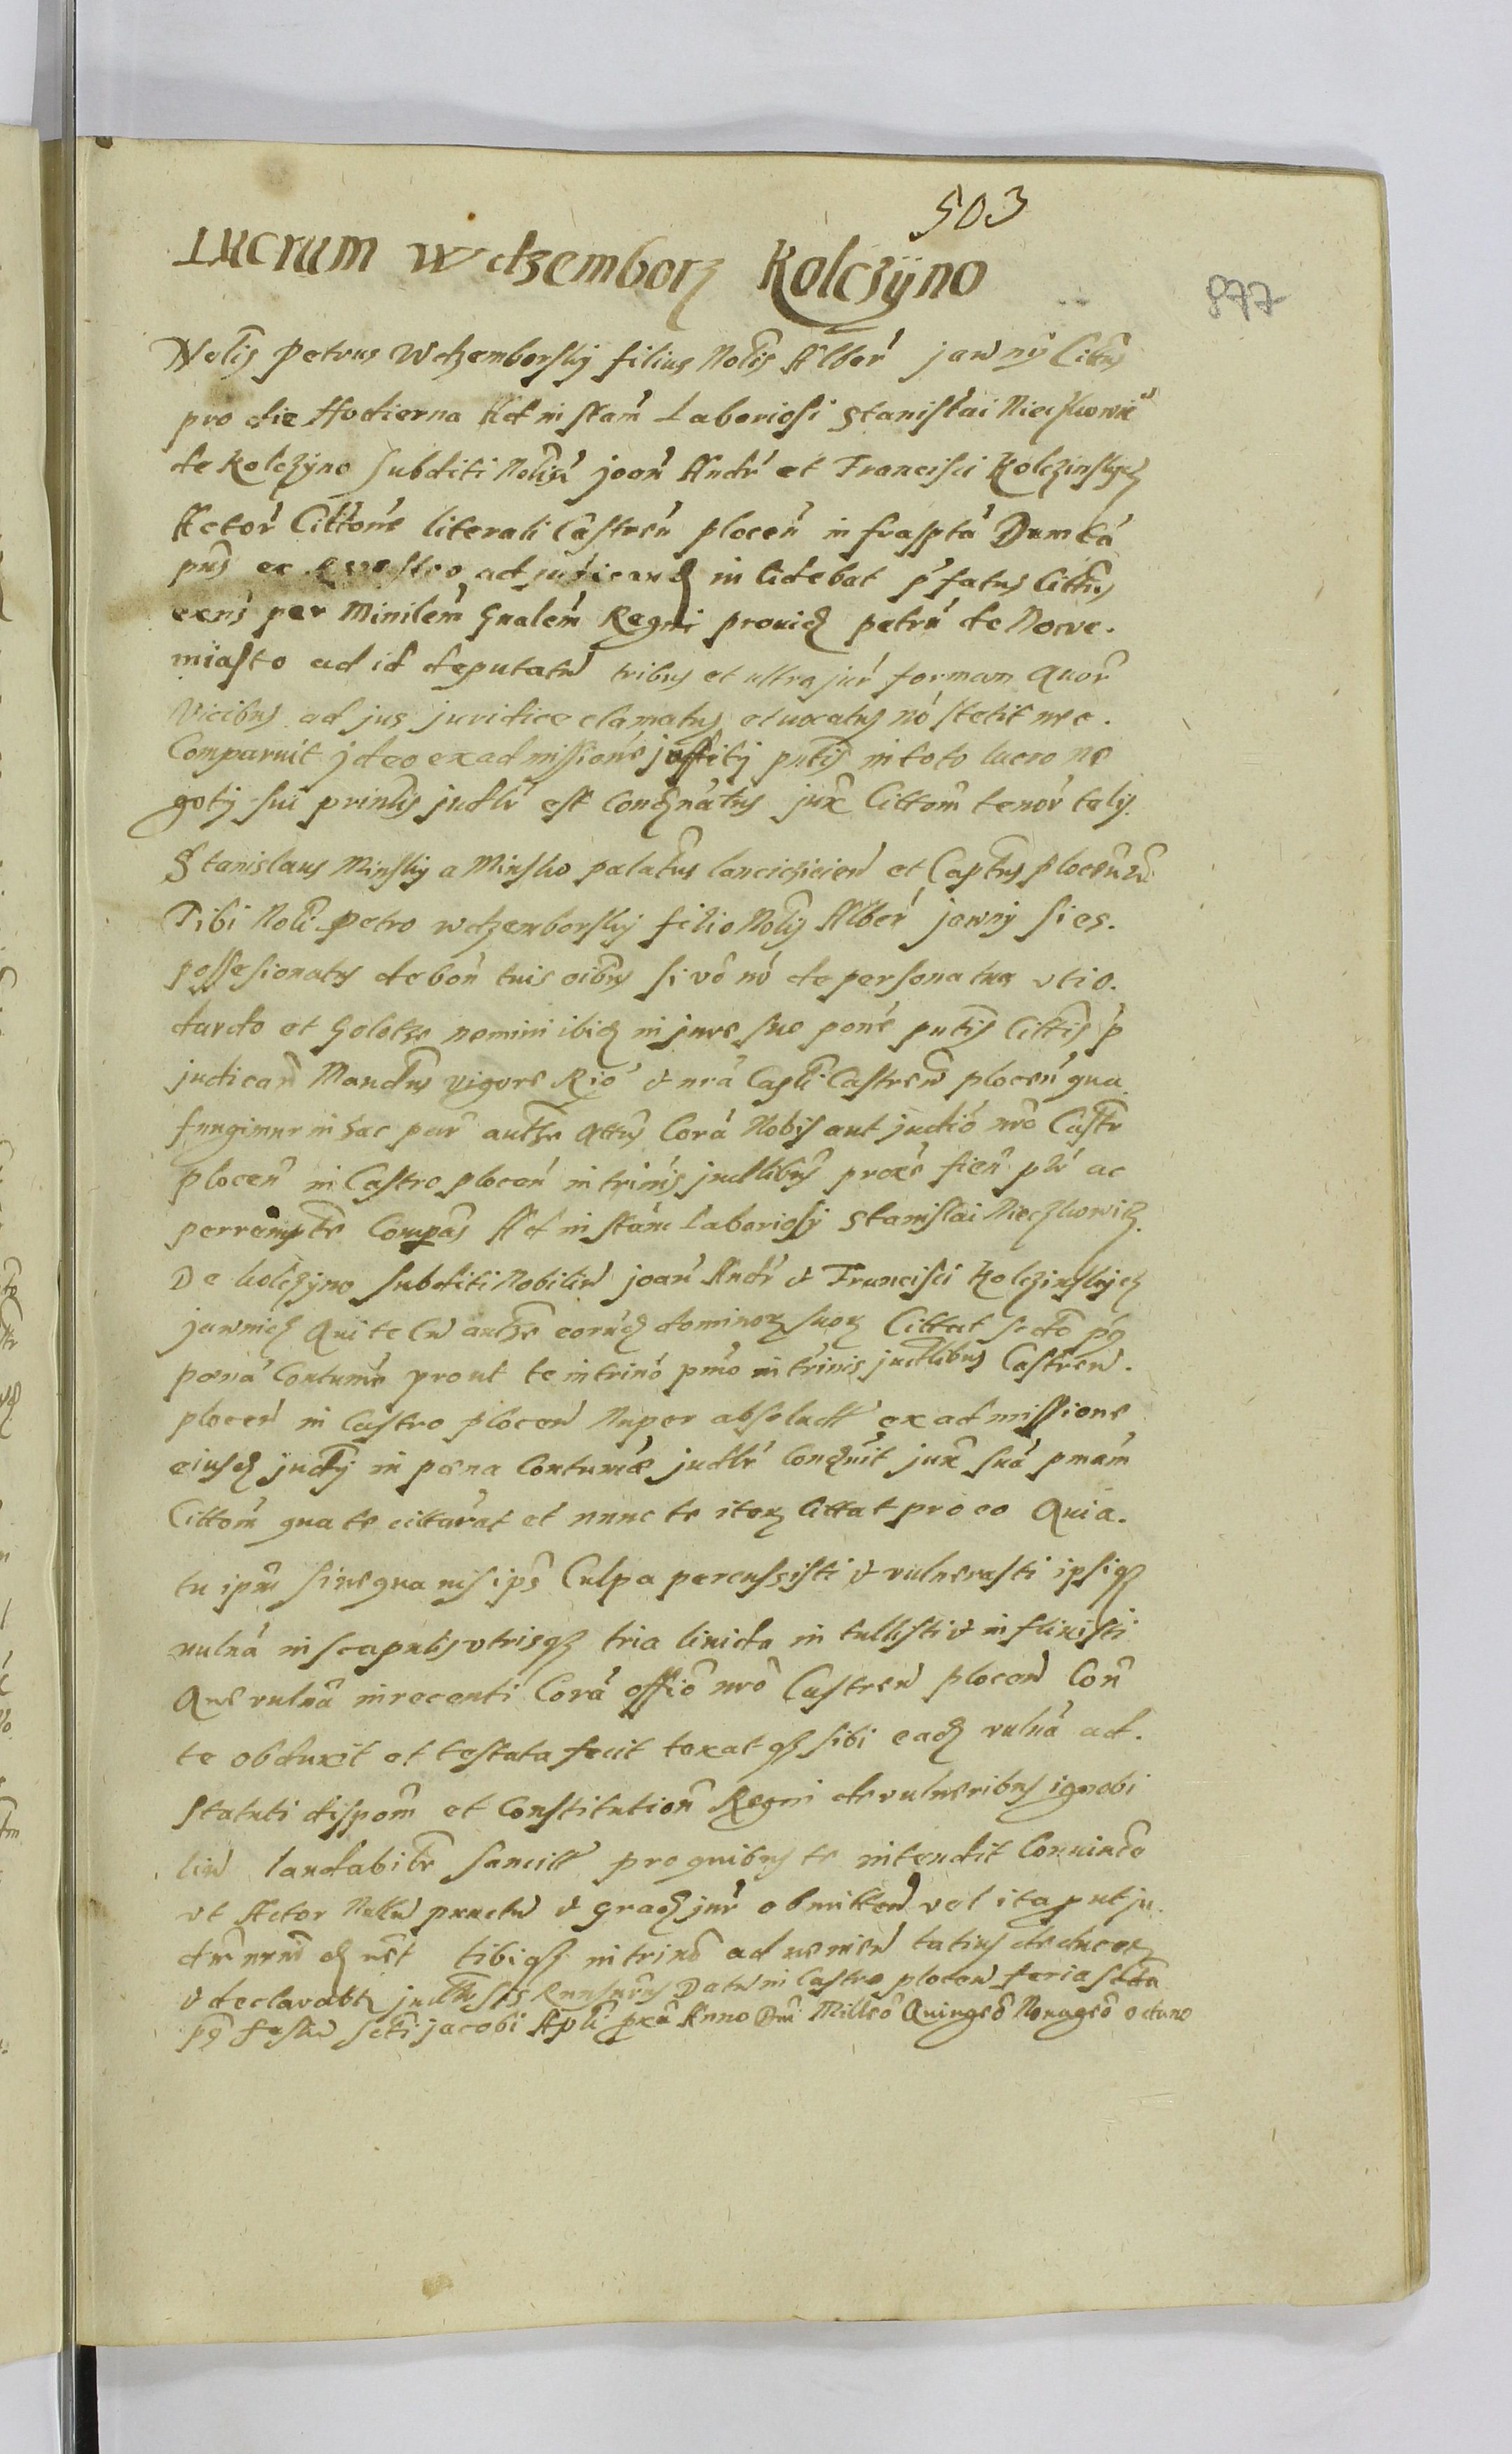 503
Lucrum Wdzemborz Kolczÿno
877
Nolis Petrus Wdzemborskij filius Nolis Alber jawnÿ Cittus
pro die Hodierna Ad instam Laboriosi Stanislai Nieczkowic
de Kolczÿno Subditi Nolium joan Andr et Francisci Kolczinskych
Actor Cittone literali Castren plocen infrascpta
pns ex adjudicand incidebat pfatus Cittus
exns per Minilem Gnalem Regni prouid petru de Nowe.
miasto ad id deputatu tribus et ultra jur formam quor
Vicibus ad jus juridice clamatus euocatus no stetit nec.
Comparuit jdeo ex admissione jossitij pntis in toto lucro ne
gotij sui prinlis judlr est Condnatus jux Cittom tenor talis.
Stanislaus Minskij a Minsko palatus lancicicien et Captus plocen
Tibi Noli Petro wdzemborskij filio Nolis Alber jawnij si es.
possesionatus de bon tuis oibus si vo no de persona tua utio.
dardo et Golotze nemini ibid in jure suo pone pntis Cittis p
judican Mandus vigore Rio & nra Capli Castren plocen qua
fungimur in hac par authe qttus Cora Nobis aut judio nro Castr
plocen in Castro plocen in trinis judlibus proxe fien plr ac
perrempte Compas Ad instam Laboriosi Stanislai Nieczkowicz.
De kolczÿno Subditi Nobiliu joan Andr & Francisci Kolczinskijch
jawnich Qui te Cu authe eorud dominorz suorz Cittat scdo pq
poena Contume prout te in trino pmo in trinis judlibus Castren.
plocen in Castro plocen Nuper absolutt ex admissione
eiusd judij in poena Contumae judlr Condnuit jux sua pmam
Cittom qua te cittarat et nunc te iterz Cittat pro eo Quia.
tu ipm sine qua uis ips Culpa percussisti & vulnerasti ipsiqz
vulna in scapulis utrisqz tria livida intullisti & inflixisti
Que vulna in recenti Cora offio nro Castren plocen Con
te obduxit et testata fecit taxat qz sibi ead vulna ad.
Statuti dispom et Constitution Regni de vulneribus ignobi
liu laudabilr sancitt pro quibus te intendit Conuince
ut Actor Nullu punctu & grad jur obmitten vel ita put ju.
tibiqz in trino ad ueniend latius deducerz
& declarabit Datu in Castro plocen feria scda
pq festu Scti jacobi Apli pxa Anno Dni Milleo Quingeo Nonageo octavo